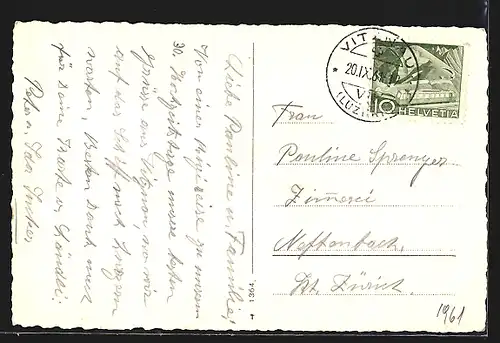 Liebe Pauline u Familie!
Von einer Rigireise zu unserem
30. Hochzeitstage unsere besten
Grüsse aus Vitznau, wo wir
auf das Schiff nach Luzern
warten. Besten Dank auch
für Deine Karte u
Peter u. Ida
VITZNAU
20.IX.61
(LUZERN)
10
HELVETIA
Frau
Pauline Sprenger
Zimerei
Neftenbach
Kt. Zürich.
1364
1961